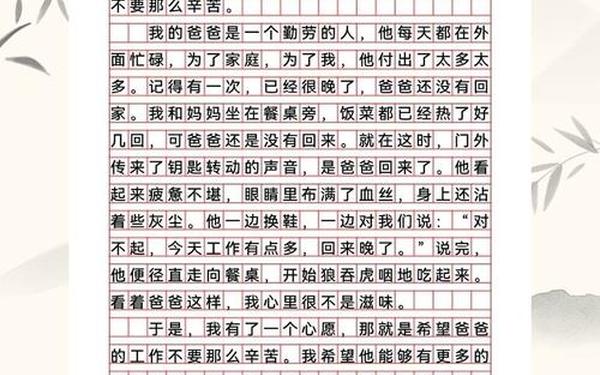 不要那么辛苦。
我的爸爸是一个勤劳的人，他每天都在外
面忙碌，为了家庭，为了我，他付出了太多太
多。记得有一次，已经很晚了，爸爸还没有回
家。我和妈妈坐在餐桌旁，饭菜都已经热了好
几回，可爸爸还是没有回来。就在这时，门外
传来了钥匙转动的声音，是爸爸回来了。他看
起来疲惫不堪，眼睛里布满了血丝，身上还沾
着些灰尘。他一边换鞋，一边对我们说：“对
不起，今天工作有点多，回来晚了。”说完，
他便径直走向餐桌，开始狼吞虎咽地吃起来。
看着爸爸这样，我心里很不是滋味。
于是，我有了一个心愿，那就是希望爸爸
的工作不要那么辛苦。我希望他能够有更多的